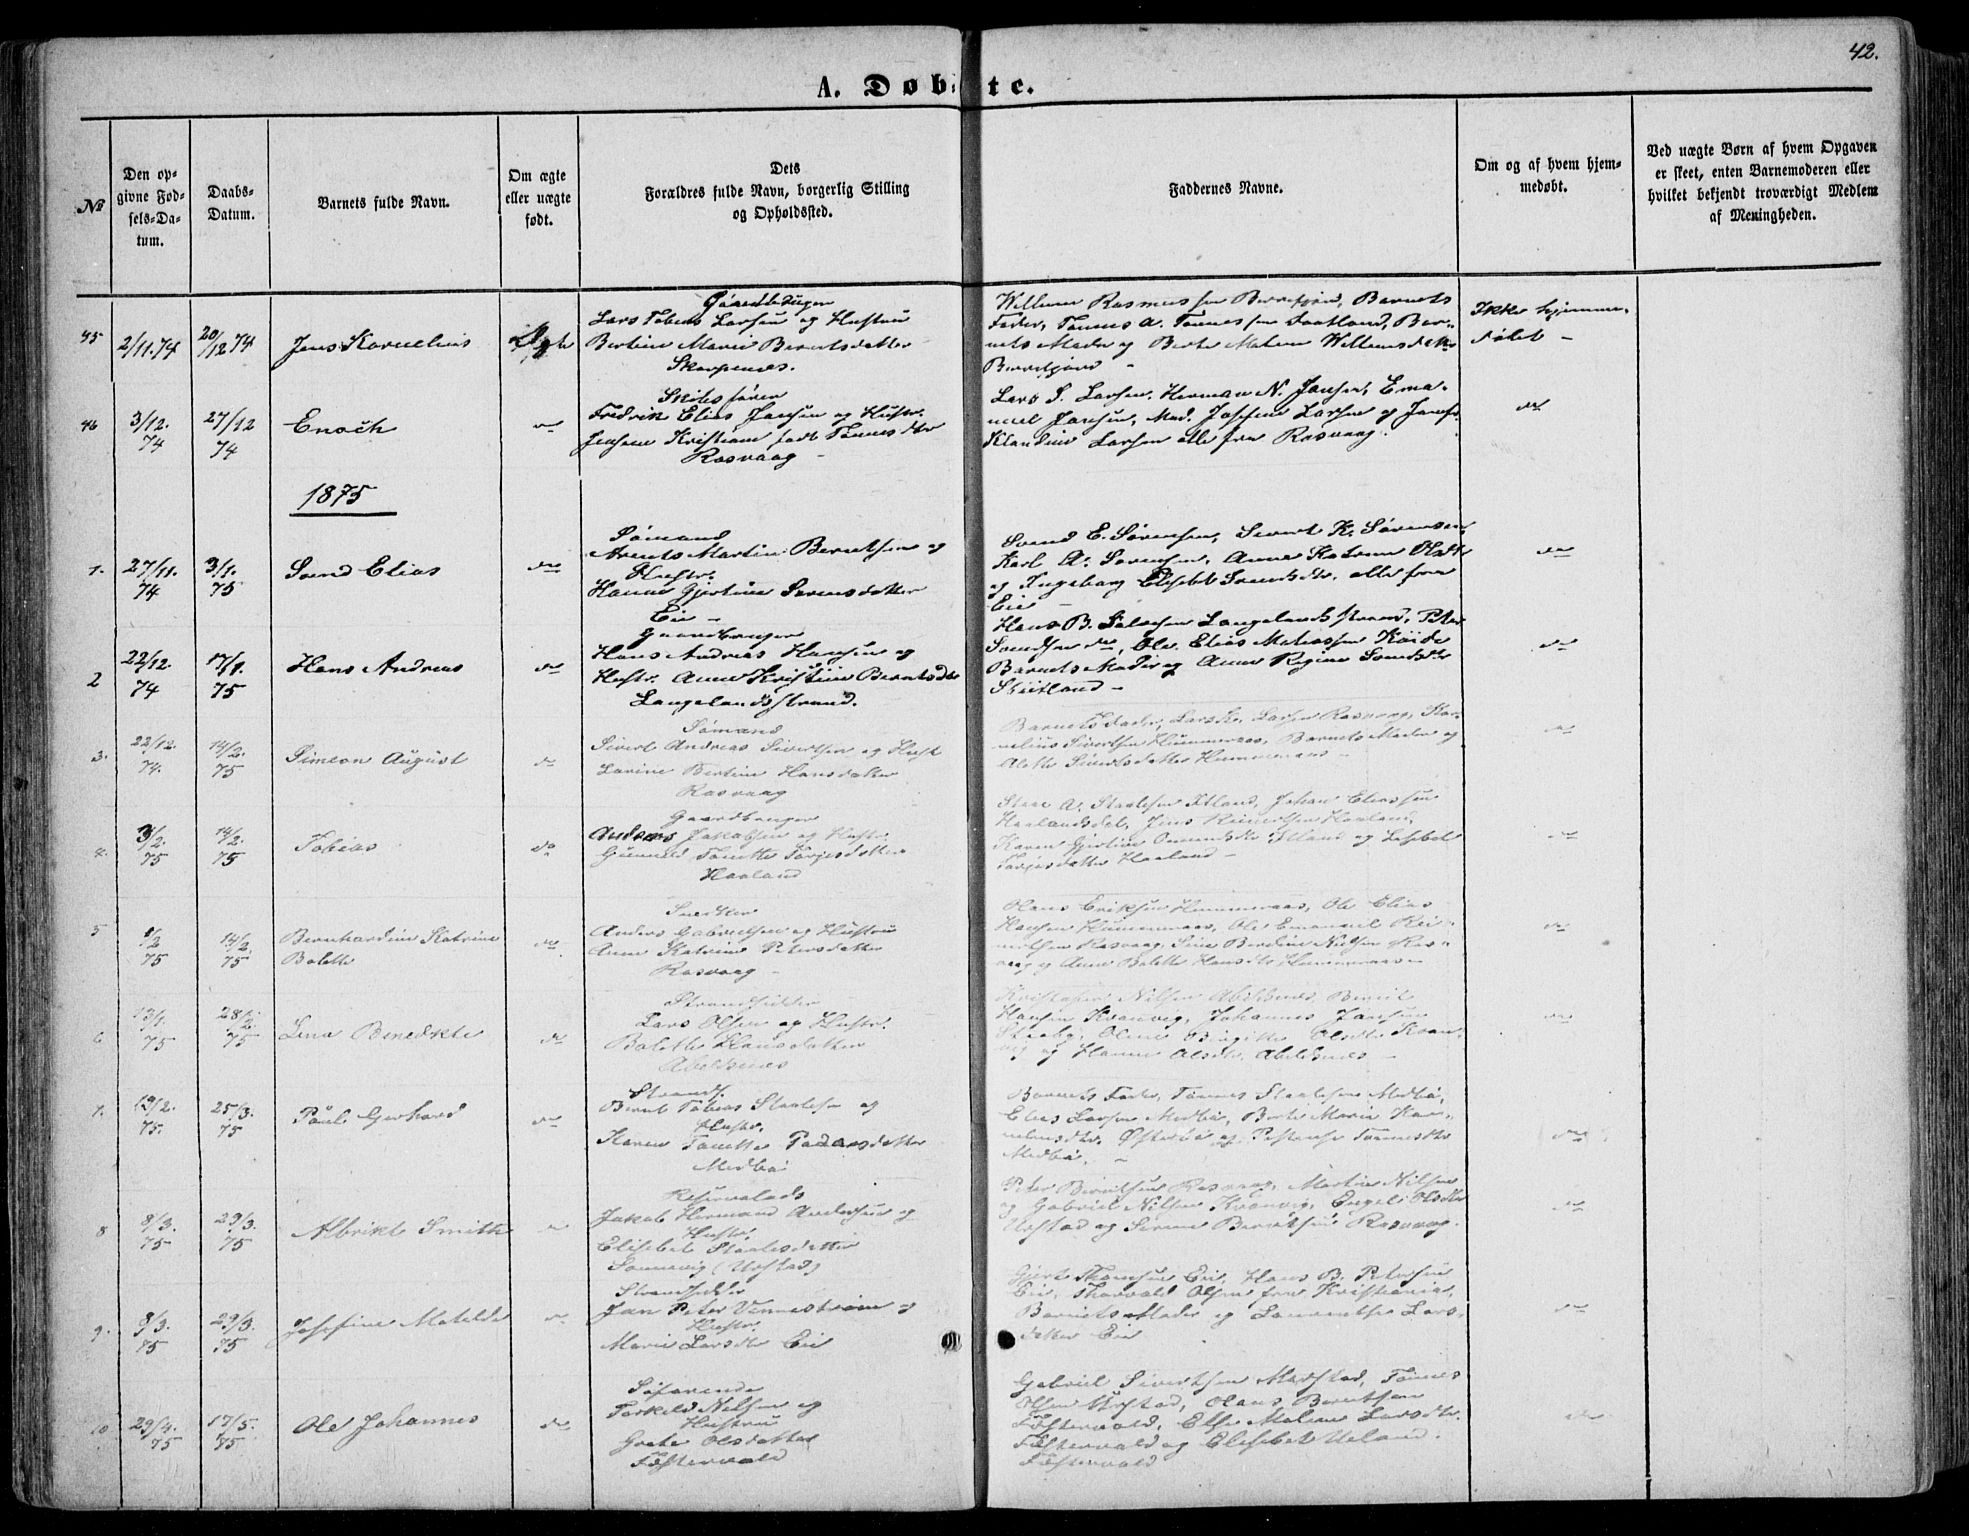 42.
A. Døbte.
№
Den opgivne Fødsels-Datum.
Daabs-Datum.
Barnets fulde Navn.
Om ægte eller uægte født.
Dets Forældres fulde Navn, borgerlig Stilling og Opholdssted.
Faddernes Navne.
Om og af hvem hjemmedøbt.
Ved uægte Børn af hvem Opgaven er skeet, enten Barnemoderen eller hvilket bekjendt troværdigt Medlem af Menigheden.
45
2/11.74
20/12 74
Jens Kornelius
Ægte
Lars Tobias Larsen og Hustru
Bertine Marie Berntsdatter
Skarpenes.
Willum Rasmussen Berrefjord, Barnets
Fader, Tønnes A. Tønnessen Faatland, Bar-
nets Moder og Berte Malene Willumsdatter
Berrefjord
Ikke hjemme-
døbt
46
3/12. 74
27/12 74
Enoch
do
Fredrik Elias Jansen og Hustr.
Kristiane født Tønnesdtr
Rasvaag
Lars S. Larsen, Herman N. Jansen, Ema-
nuel Jansen, Mad. Josefine Larsen og
Klaudine Larsen alle fra Rasvaag.
do
1875
1.
27/11. 74
3/1. 75
Svend Elias
do
Sømand
Arents Martin Berntsen og
Hustr.
Hanne Gjertine Svensdatter
Eie
Svend E. Sørensen, Sivert K. Sørensen
Karl A. Sørensen, Anne Katrine
og Ingeborg Elisabet Svendsdtr, alle fra
Eie
do
2
22/12 74
17/1. 75
Hans Andreas
do
Gaardbruger
Hans Andreas Hansen og
Hustr. Anne Kristine Berntsdtr
Langelandsstrand.
Hans B. Salvesen Langelandsstrand, Peter
Svendsen do, Ole Elias Matiassen Køide
Barnets Moder og Anne Regine Svendsdtr
Skiitland
do
3.
22/12. 74.
14/2. 75
Simeon August
do
Sømand
Sivert Andreas Sivertsen og Hust
Larine Bertine Hansdatter
Rasvaag
Barnets Fader, Lars Larsen Rasvaag, Kor-
nelius Sivertsen Hummeraas, Barnets Moder og
Alette Sivertsdatter Hummeraas
do
4.
3/2. 75
14/2. 75
Tobias
do
Gaardbruger
Anders Jakobsen og Hustr
Gunnild Tonette Torjesdatter
Haaland
A. Staalesen Itland, Johan Eliassen
Haalandsdal, Jens Haaland,
Karen Gjertine Omundsdtr Itland og Lisebet
Torjesdatter Haaland
do
5
1/2 75
14/2. 75
Bernhardine Katrine
Bolette
do.
Snedker
Anders Gabrielsen og Hustru
Anne Katrine Petersdatter
Rasvaag
Olaus Eriksen Hummeraas, Ole Elias
Hansen Hummeraas, Ole Emanuel Rei-
nertsen Rasvaag, Sine Berdine Nielsen Ras-
vaag og Anne Bolette Hansdtr Hummeraas
do
6
13/1. 75
28/2 75
Lena Benedikte
do
Strandsidder
Lars Olsen og Hustr.
Bolette Hansdatter
Abelsnes
Kristofer Nilsen Abelsnes, Berul
Hansen Kvanvig, Johannes Jansen
Olene Birgitte Olsdtr Kvan-
vig og Hanne Olsdtr Abelsnes
do
7.
19/2. 75.
25/3. 75
Paul Gerhard
do
Strands.
Bernt Tobias Staalesen og
Hustr.
Karen Tonette Pedersdatter
Medbø
Barnets Fader, Tønnes Staalesen Medbø,
Elias Larsen Medbø, Berte Maria Kor-
neliusdtr. Østerbø og Tønnesdtr
Medbø.
do
8
8/3. 75
29/3. 75
Albrikt Smith
do
Jakob Hermand Andersen og
Hustr.
Elisebet Staalesdatter
Sonnevig (Urstad)
Peter Berntsen Rasvaag, Martin Nilsen
og Gabriel Nilsen Kvanvig, Engel Olsdtr
Urstad og Serine Berntsen Rasvaag.
do
9.
9/3. 75
29/3. 75
Josefine Matilde
do
Strandsidder
Jan Peter Vennestrøm og
Hustr.
Marie Larsdtr Eie
Gjert Thomsen Eie, Hans B. Petersen
Eie, Thorvald Olsen fra Kristiania,
Barnets Moder og Laurentse Lars-
datter Eie
do
10
29/4. 75
17/5. 75
Ole Johannes
do
Søfarende
Torkild Nilsen og
Hustru
Grete Olsdatter
Fæstervold
Gabriel Sivertsen Urstad, Tønnes
Olsen Urstad, Olaus Berntsen
Fæstervold, Else Malene Larsdtr.
Fæstervold og Elisebet Ueland.
Fæstervold
do